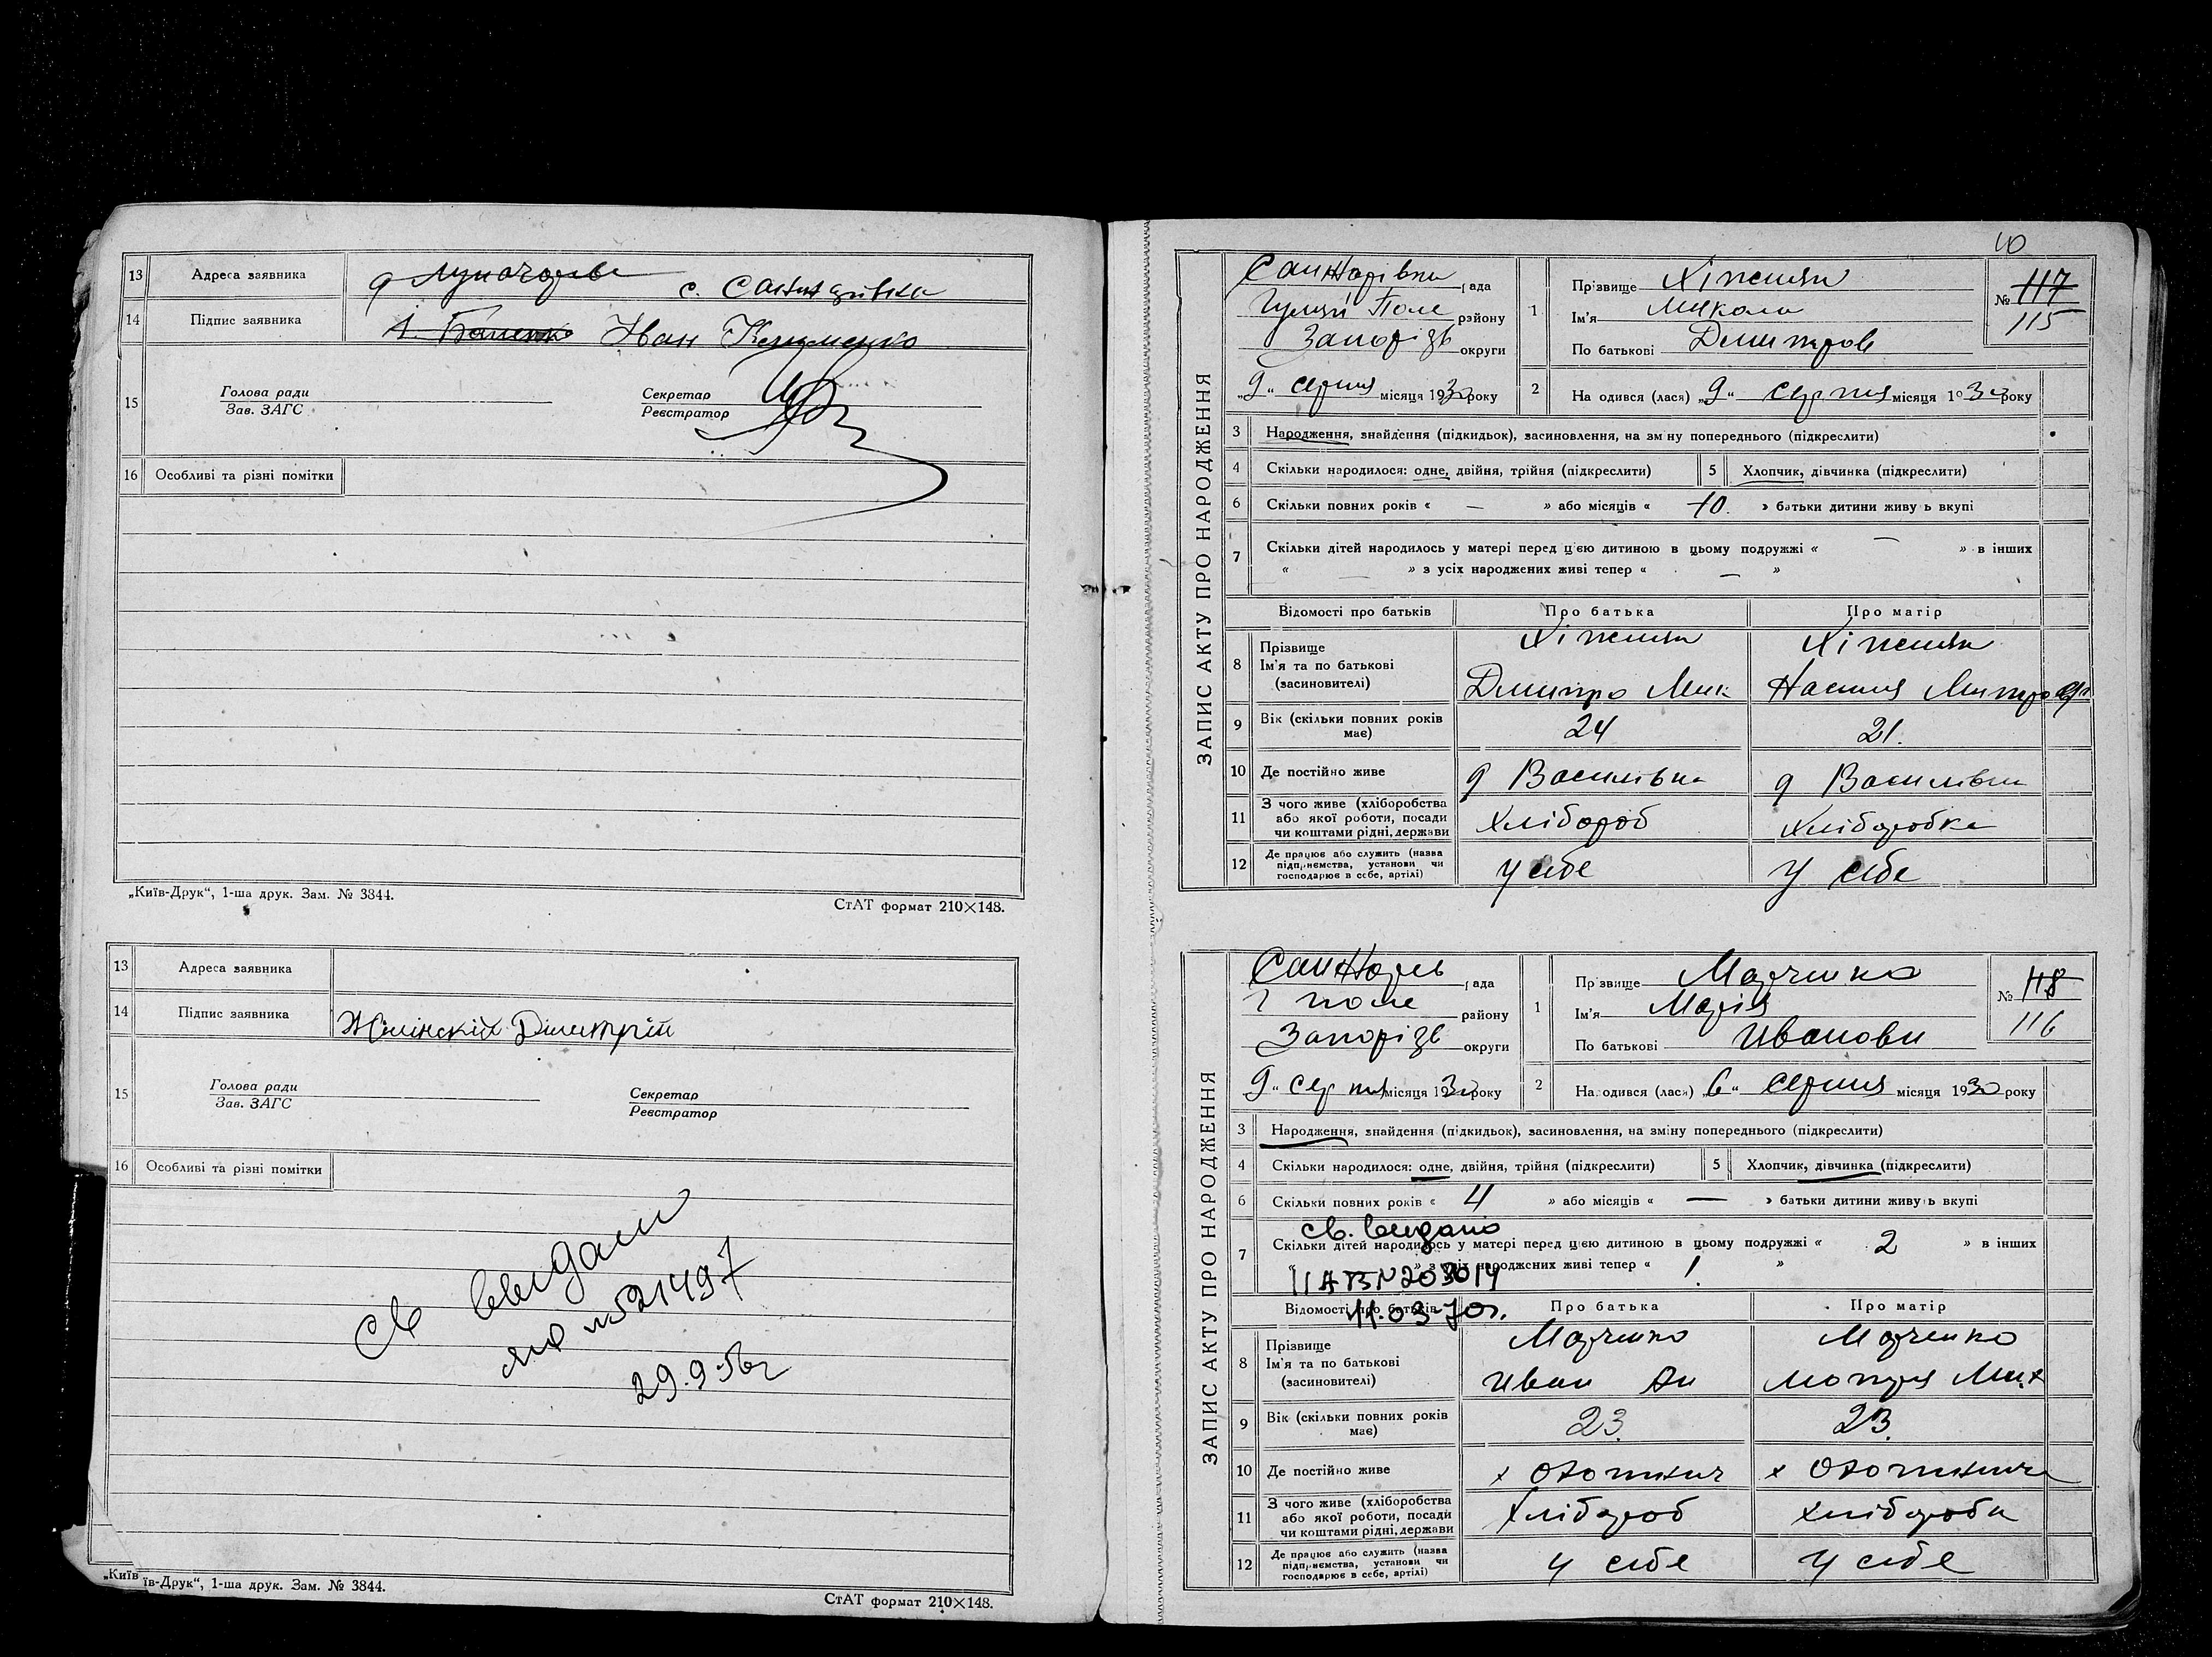 13 Адреса заявника с. Санжарівка
14 Підпис заявника Іван
15 Голова ради
Зав. ЗАГС
Секретар
Реєстратор
16 Особливі та різні помітки
„Київ-Друк“, 1-ша друк. Зам. № 3844.
СтАТ формат 210×148.
13 Адреса заявника
14 Підпис заявника
15 Голова ради
Зав. ЗАГС
Секретар
Реєстратор
16 Особливі та різні помітки
Св видано
№ 521497
29.9.56г
„Київ
їв-Друк“, 1-ша друк. Зам. № 3844.
СтАТ формат 210×148.
10
ЗАПИС АКТУ ПРО НАРОДЖЕННЯ
Санжарівка рада
Гуляй Поле району
Запорізь округи
„9“ серпня місяця 1930 року
1 Прізвище
Ім'я Микола
По батькові Дмитров
№ 117
115
2 На одився (лася) „9“ серпня місяця 1930 року
3 Народження, знайдення (підкидьок), засиновлення, на зміну попереднього (підкреслити)
4 Скільки народилося: одне, двійня, трійня (підкреслити)
5 Хлопчик, дівчинка (підкреслити)
6 Скільки повних років « — » або місяців « 10. » батьки дитини живу ь вкупі
7 Скільки дітей народилось у матері перед цією дитиною в цьому подружжі « — » в інших
« — » з усіх народжених живі тепер « — »
Відомості про батьків Про батька Про матір
8 Прізвище
Ім'я та по батькові Дмитро Мик Настя Митроф
(засиновителі)
9 Вік (скільки повних років має) 24 21.
10 Де постійно живе д Василівка д Василівка
11 З чого живе (хліборобства
або якої роботи, посади Хлібороб Хліборобка
чи коштами рідні, держави
12 Де працює або служить (назва
підприємства, установи чи у себе у себе
господарює в себе, артілі)
ЗАПИС АКТУ ПРО НАРОДЖЕННЯ
Санжарів рада
Г поле району
Запорізь округи
9“ серпня місяця 1930 року
1 Прізвище Марченко
Ім'я Марія
По батькові Иванови
№ 118
116
2 На одився (лася) „6“ серпня місяця 1930 року
3 Народження, знайдення (підкидьок), засиновлення, на зміну попереднього (підкреслити)
4 Скільки народилося: одне, двійня, трійня (підкреслити)
5 Хлопчик, дівчинка (підкреслити)
6 Скільки повних років « 4 » або місяців « — » батьки дитини живу ь вкупі
св. видано
7 Скільки дітей народилось у матері перед цією дитиною в цьому подружжі « 2 » в інших
» з усіх народжених живі тепер « 1. »
11.03-70г.
Відомості про батьків Про батька Про матір
8 Прізвище Марченко Марченко
Ім'я та по батькові Иван Ан Мотря Мих
(засиновителі)
9 Вік (скільки повних років має) 23. 23.
10 Де постійно живе х х
11 З чого живе (хліборобства
або якої роботи, посади Хлібороб Хлібороби
чи коштами рідні, держави
12 Де працює або служить (назва
підприємства, установи чи у себе у себе
господарює в себе, артілі)